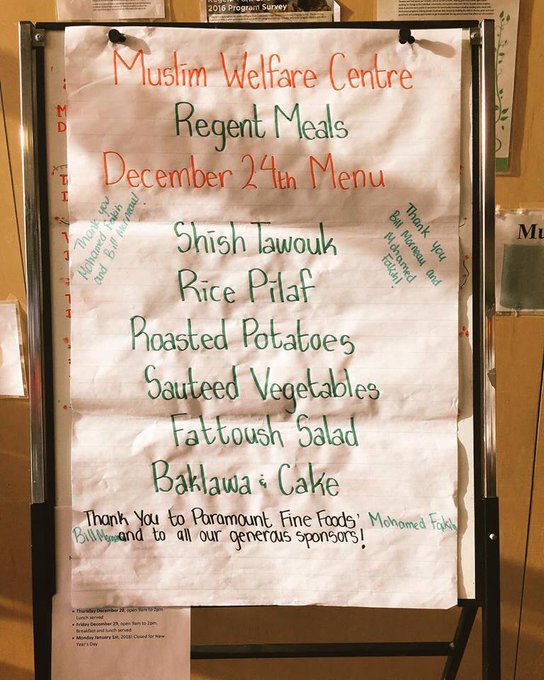 2016 Program Survey
Muslim Welfare Centre
Regent Meals
December 24th Menu
Thank you
Mohamed Fakih
and Bill Morneau!
Thank you
Bill Morneau and
Mohamed
Fakih!
Shish Tawouk
Rice Pilaf
Roasted Potatoes
Sauteed Vegetables
Fattoush Salad
Baklawa & Cake
Thank You to Paramount Fine Foods' Mohamed Fakih
Bill Morneau and to all our generous sponsors!
Mu
• Thursday December 28, open 9am to 2pm
Lunch served
• Friday December 29, open 9am to 2pm,
Breakfast and lunch served
• Monday January 1st, 2018: Closed for New
Year's Day